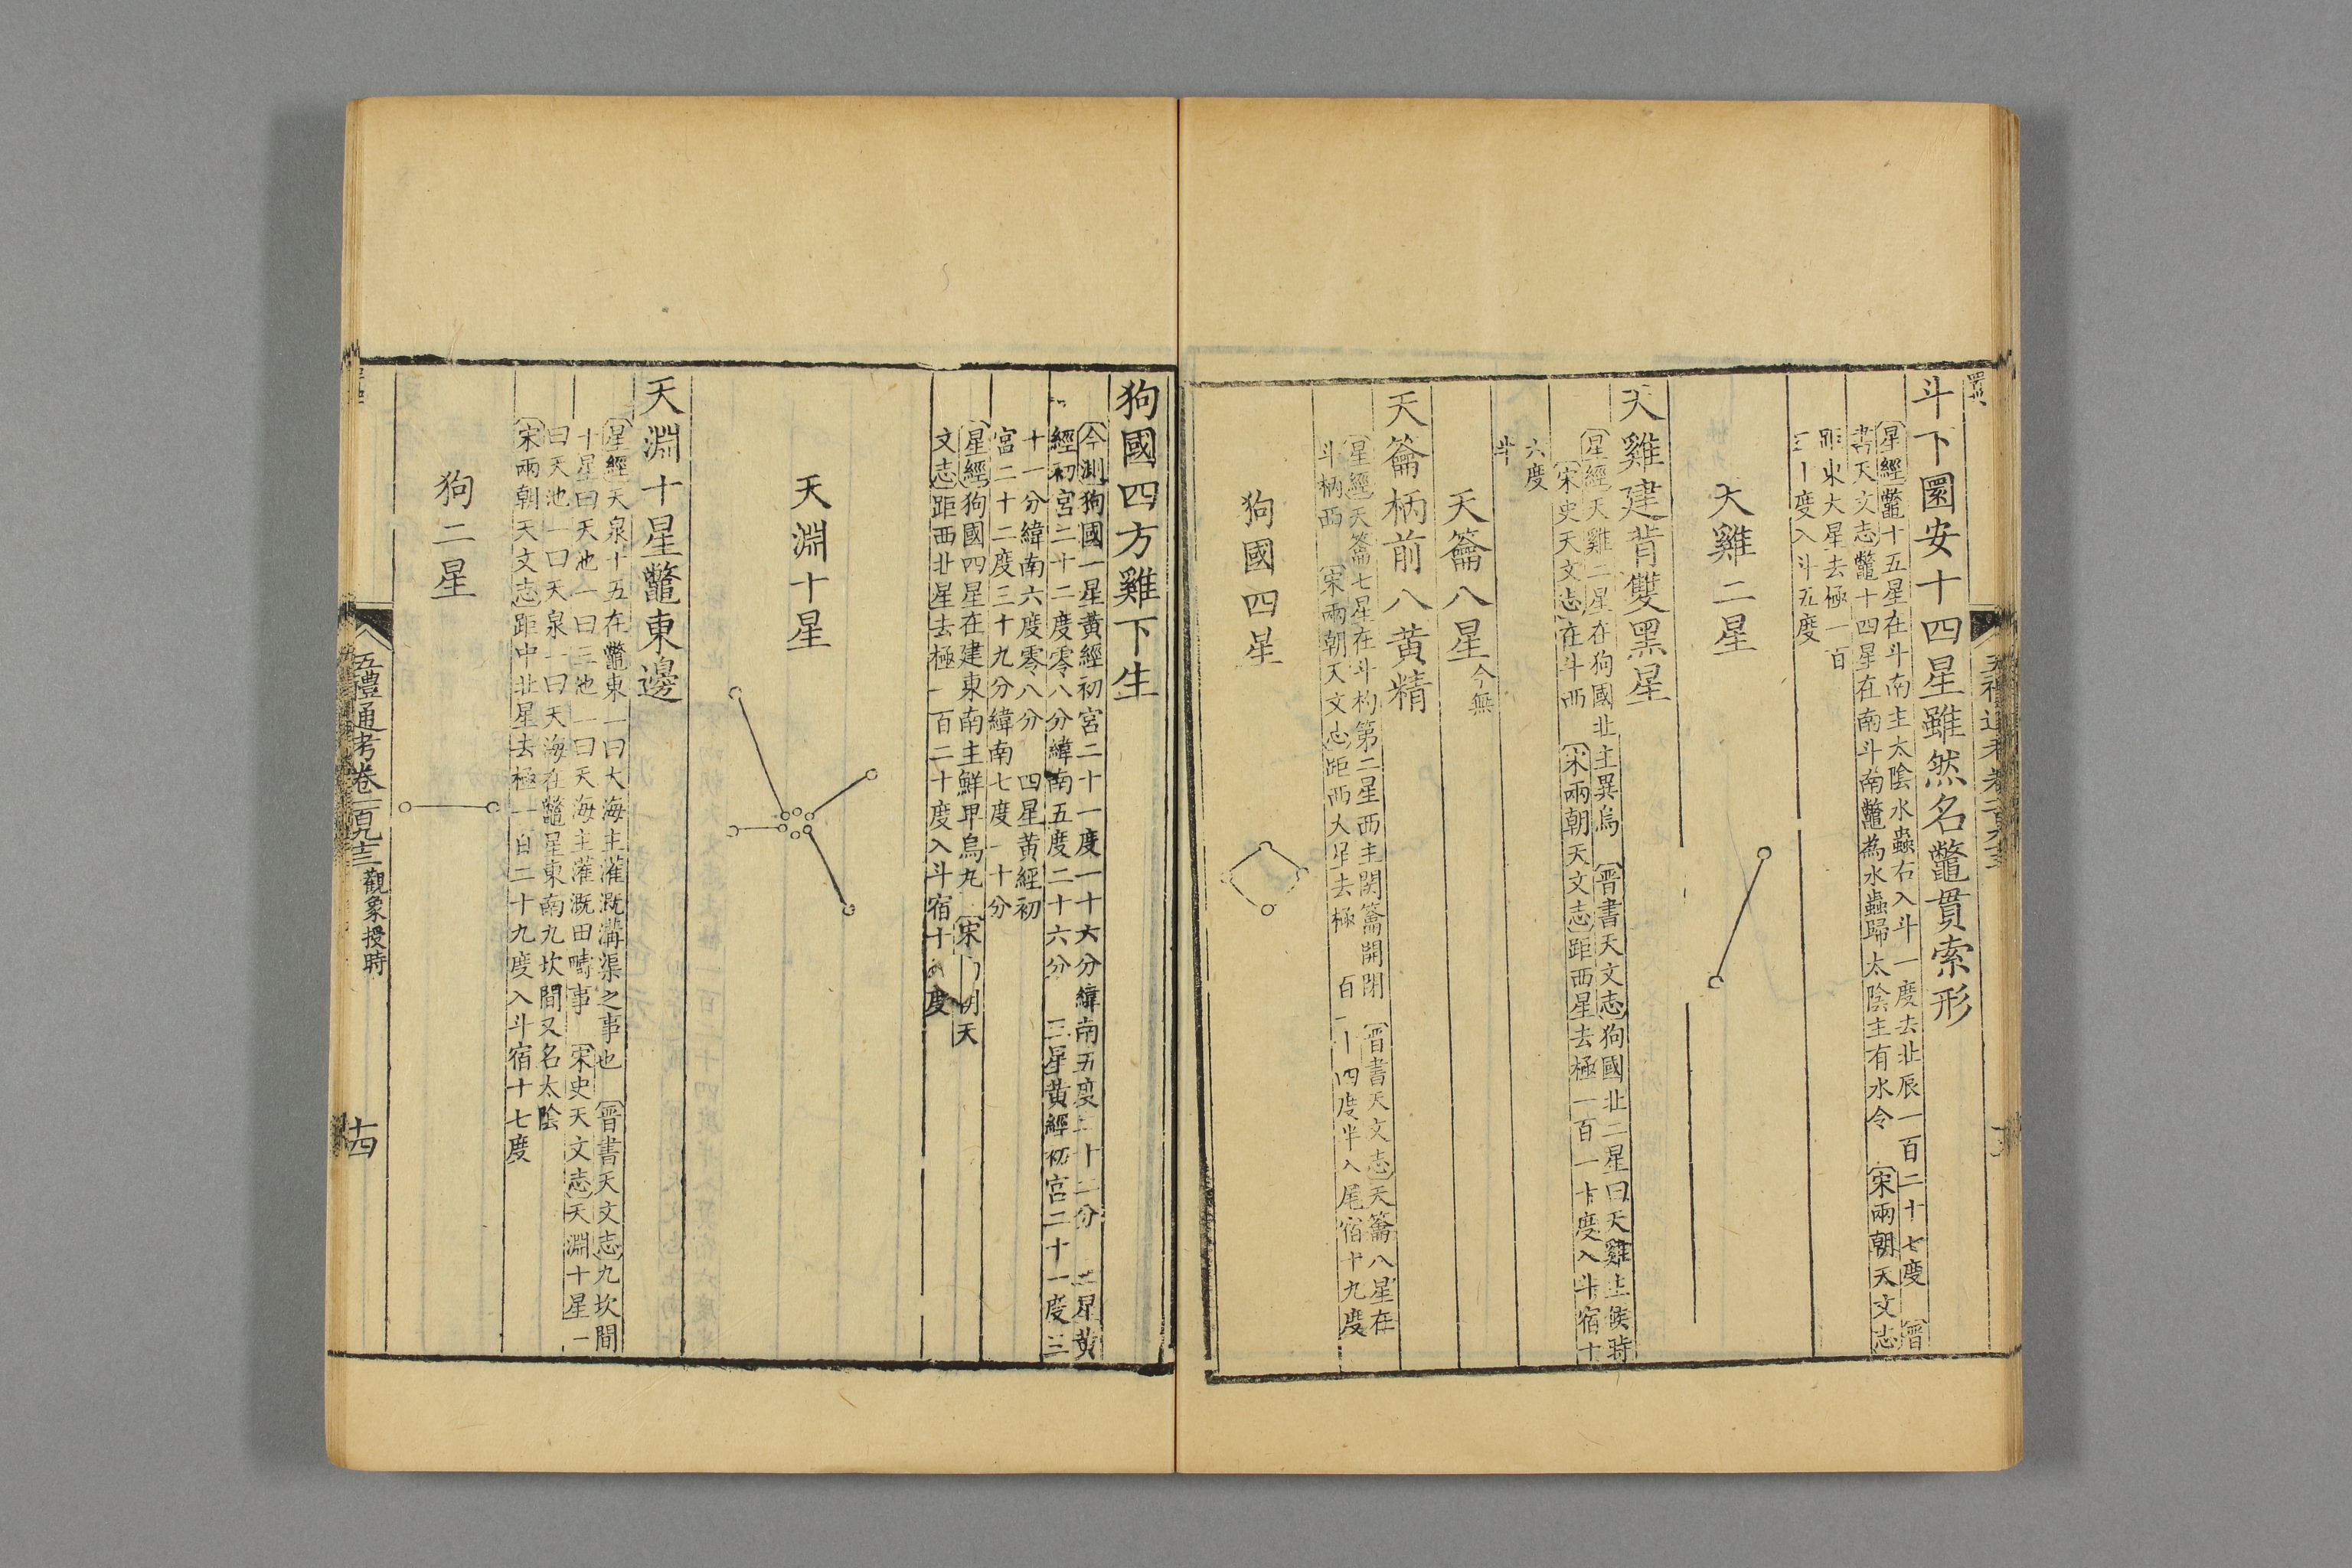 斗下圓安十四星雖然名鼈貫索形
星經鼈十五星在斗南主太陰水蟲右入斗一度去北辰一百二十七度 晉
書天文志鼈十四星在南斗南鼈為水蟲歸太陰主有水令 宋兩朝天文志
距東大星去極一百
三十度入斗五度
天雞二星
天雞建背雙黑星
星經天雞二星在狗國北主異鳥 晉書天文志狗國北二星曰天雞主候時
宋史天文志在斗西 宋兩朝天文志距西星去極一百一十度入斗宿十
六度
半
天籥八星今無
天籥柄前八黃精
星經天籥七星在斗杓第二星西主關籥開閉 晉書天文志天籥八星在
斗柄西 宋兩朝天文志距西大星去極一百一十四度半入尾宿十九度
狗國四星
狗國四方雞下生
今測狗國一星黃經初宮二十一度一十六分緯南五度二十二分 二星黃
經初宮二十二度零八分緯南五度二十六分 三星黃經初宮二十一度三
十一分緯南六度零八分 四星黃經初
宮二十二度三十九分緯南七度一十分
星經狗國四星在建東南主鮮卑烏丸 宋兩朝天
文志距西北星去極一百二十度入斗宿十 度
天淵十星
天淵十星鼈東邊
星經天泉十五在鼈東一曰大海主灌溉溝渠之事也 晉書天文志九坎間
十星曰天池一曰三池一曰天海主灌溉田疇事 宋史天文志天淵十星一
曰天池一曰天泉一曰天海在鼈星東南九坎間又名太陰
宋兩朝天文志距中北星去極一百二十九度入斗宿十七度
狗二星
五禮通考卷一百九十三 觀象授時
十四